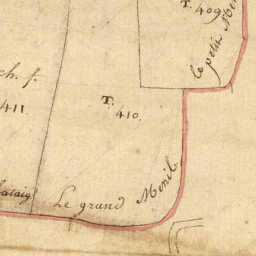 T.
409
le petit
ch. f.
411
T.
410.
Le grand Menil